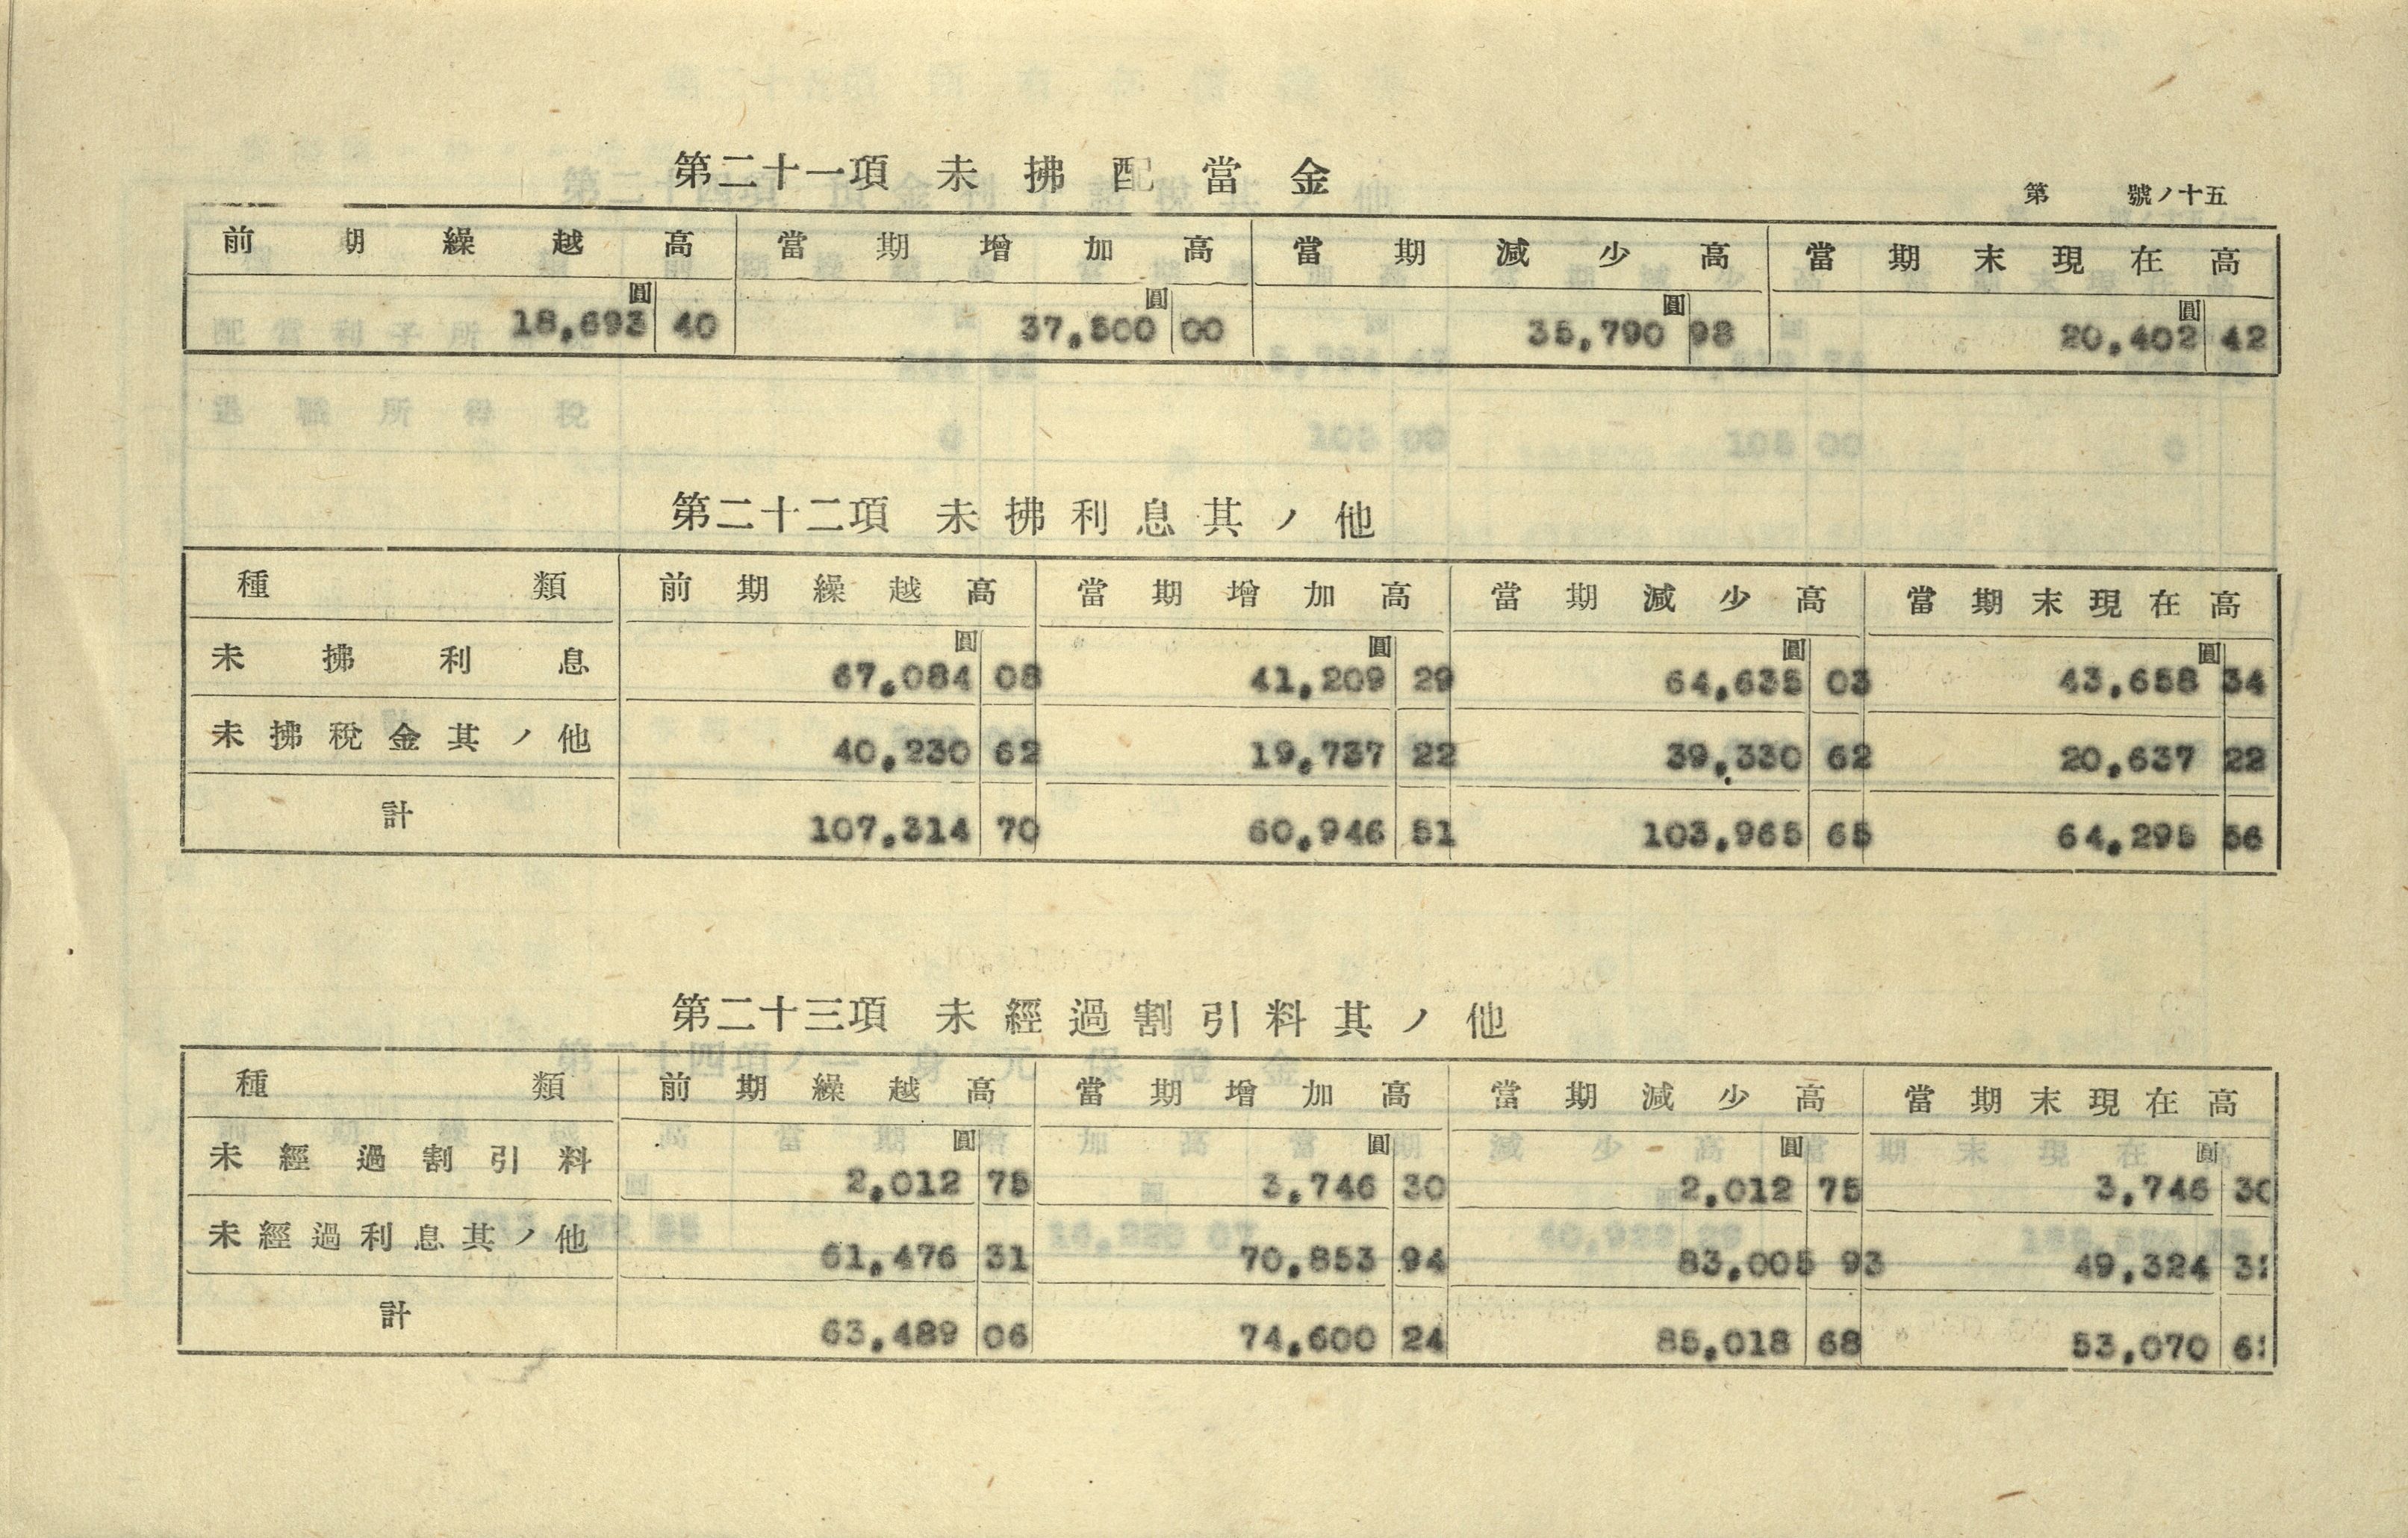 第二十一項 未拂配當金
第 號ノ十五
前期繰越高 當期增加高 當期減少高 當期末現在高
圓 圓 圓 圓
18,693 40 37,500 00 35,790 98 20,402 42
第二十二項 未拂利息其ノ他
種類 前期繰越高 當期增加高 當期減少高 當期末現在高
圓 圓 圓 圓
未拂利息 67,084 08 41,209 29 64,635 03 43,658 34
未拂稅金其ノ他 40,230 62 19,737 22 39,330 62 20,637 22
計 107,314 70 60,946 51 103,965 65 64,295 56
第二十三項 未經過割引料其ノ他
種類 前期繰越高 當期增加高 當期減少高 當期末現在高
圓 圓 圓 圓
未經過割引料 2,012 75 3,746 30 2,012 75 3,746 30
未經過利息其ノ他 61,476 31 70,853 94 83,005 93 49,324 3
計 63,489 06 74,600 24 85,018 68 53,070 6